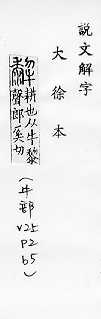 說文解字
大徐本
耕也从牛黎
聲郎奚切
(牛部
V25
P2
b5)